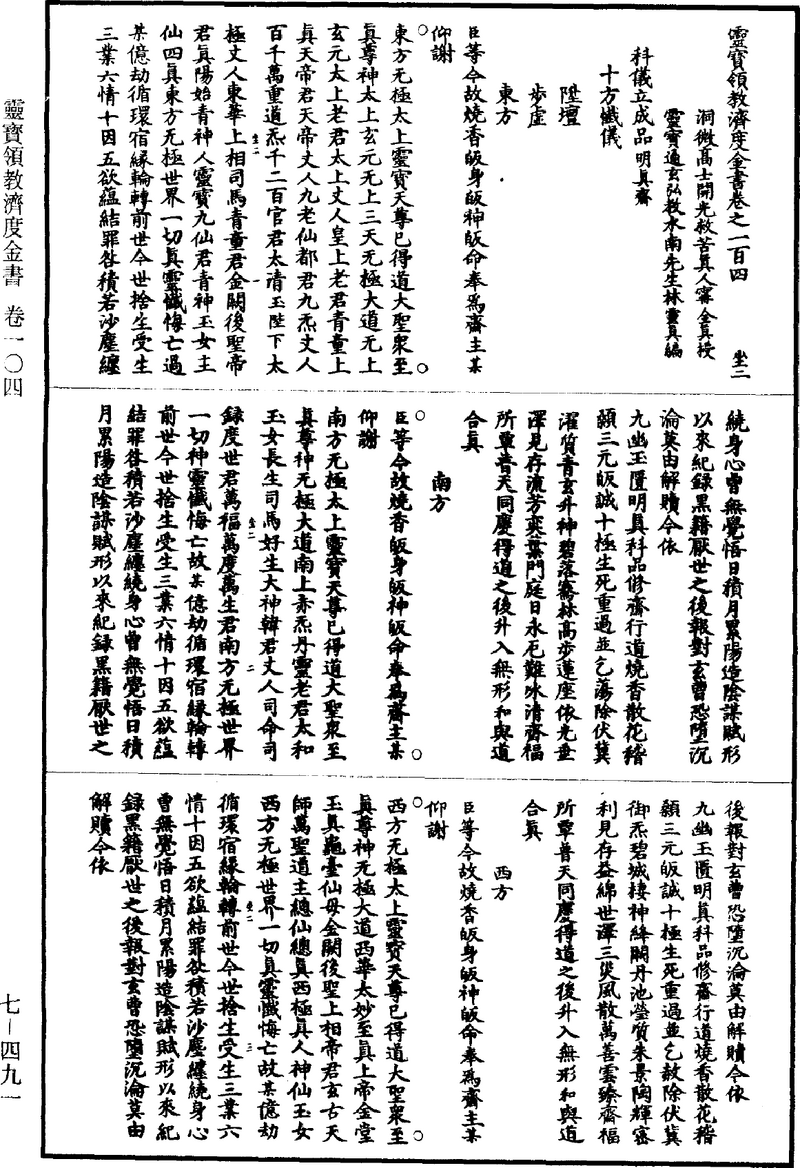 靈寶領教濟度金書卷之一百四　坐二
洞微高士開光救苦眞人甯全眞授
靈寶通玄弘教水南先生林靈眞編
科儀立成品明眞齋
十方懺儀
陞壇
步虛
東方
臣等今故燒香皈身皈神皈命奉爲齋主某
仰謝
東方无極太上靈寶天尊已得道大聖衆至
眞尊神太上玄元无上三天无極大道无上
玄元太上老君太上丈人皇上老君青童上
眞天帝君天帝丈人九老仙都君九炁丈人
百千萬重道炁千二百官君太清玉陛下太
極丈人東華上相司馬青童君金闕後聖帝
君眞陽始青神人靈寶九仙君青神玉女主
仙四眞東方无極世界一切眞靈懺悔亡過
某億劫循環宿緣輪轉前世今世捨生受生
三業六情十因五欲蘊結罪咎積若沙塵纏
繞身心曾無覺悟日積月累陽造陰謀賦形
以來紀録黑籍厭世之後報對玄曹恐墮沉
淪莫由解贖今依
九幽玉匱明眞科品修齋行道燒香散花稽
顙三元皈誠十極生死重過並乞蕩除伏冀
濯質青玄升神碧落騫林高步蓮座依光垂
澤見存流芳奕葉門庭日永厄難冰清齋福
所覃普天同慶得道之後升入無形和與道
合眞
南方
臣等今故燒香皈身皈神皈命奉爲齋主某
仰謝
南方无極太上靈寶天尊已得道大聖衆至
眞尊神无極大道南上赤炁丹靈老君太和
玉女長生司馬好生大神韓君丈人司命司
録度世君萬福萬度萬生君南方无極世界
一切神靈懺悔亡故某億劫循環宿緣輪轉
前世今世捨生受生三業六情十因五欲蘊
結罪咎積若沙塵纏繞身心曾無覺悟日積
月累陽造陰謀賦形以來紀録黑籍厭世之
後報對玄曹恐墮沉淪莫由解贖今依
九幽玉匱明眞科品修齋行道燒香散花稽
顙三元皈誠十極生死重過並乞赦除伏冀
御炁碧城棲神絳闕丹池瑩質朱景陶輝密
利見存益綿世澤三災風散萬善雲臻齋福
所覃普天同慶得道之後升入無形和與道
合眞
西方
臣等今故燒香皈身皈神皈命奉爲齋主某
仰謝
西方无極太上靈寶天尊已得道大聖衆至
眞尊神无極大道西華太妙至眞上帝金堂
玉眞龜臺仙母金闕後聖上相帝君玄古天
師萬聖道主總仙總眞西極眞人神仙玉女
西方无極世界一切眞靈懺悔亡故某億劫
循環宿緣輪轉前世今世捨生受生三業六
情十因五欲蘊結罪咎積若沙塵纏繞身心
曾無覺悟日積月累陽造陰謀賦形以來紀
録黑籍厭世之後報對玄曹恐墮沉淪莫由
解贖今依
靈寶領教濟度金書　卷一〇四
七—四九一